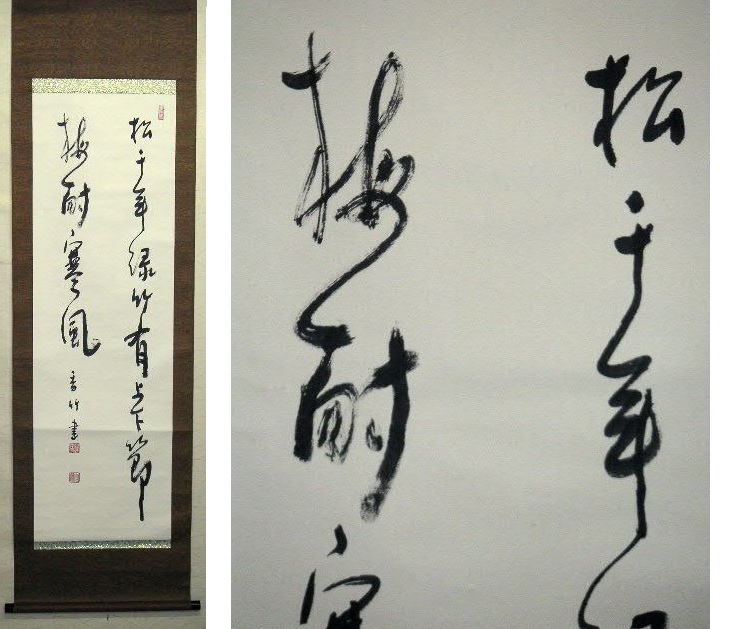 松千年緑竹有上下節
梅耐寒風
香竹書
松千年
梅耐寒